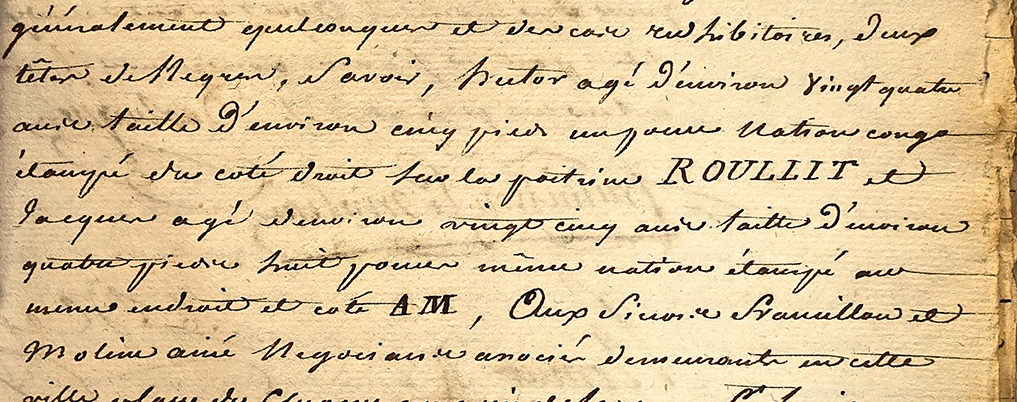 généralement quelconques et des cas redhibitoires, deux
têtes de Negres, Savoir, hector agé d'environ vingt quatre
ans taille d'environ cinq pieds un pouce Nation congo
étampé du coté droit sur la poitrine ROULLIT et
Jacques agé d'environ vingt cinq ans taille d'environ
quatre pieds huit pouces même nation étampé au
meme endroit et coté AM, Aux Sieurs et
Moline ainé Negocians associés demeurants en cette
ville place du